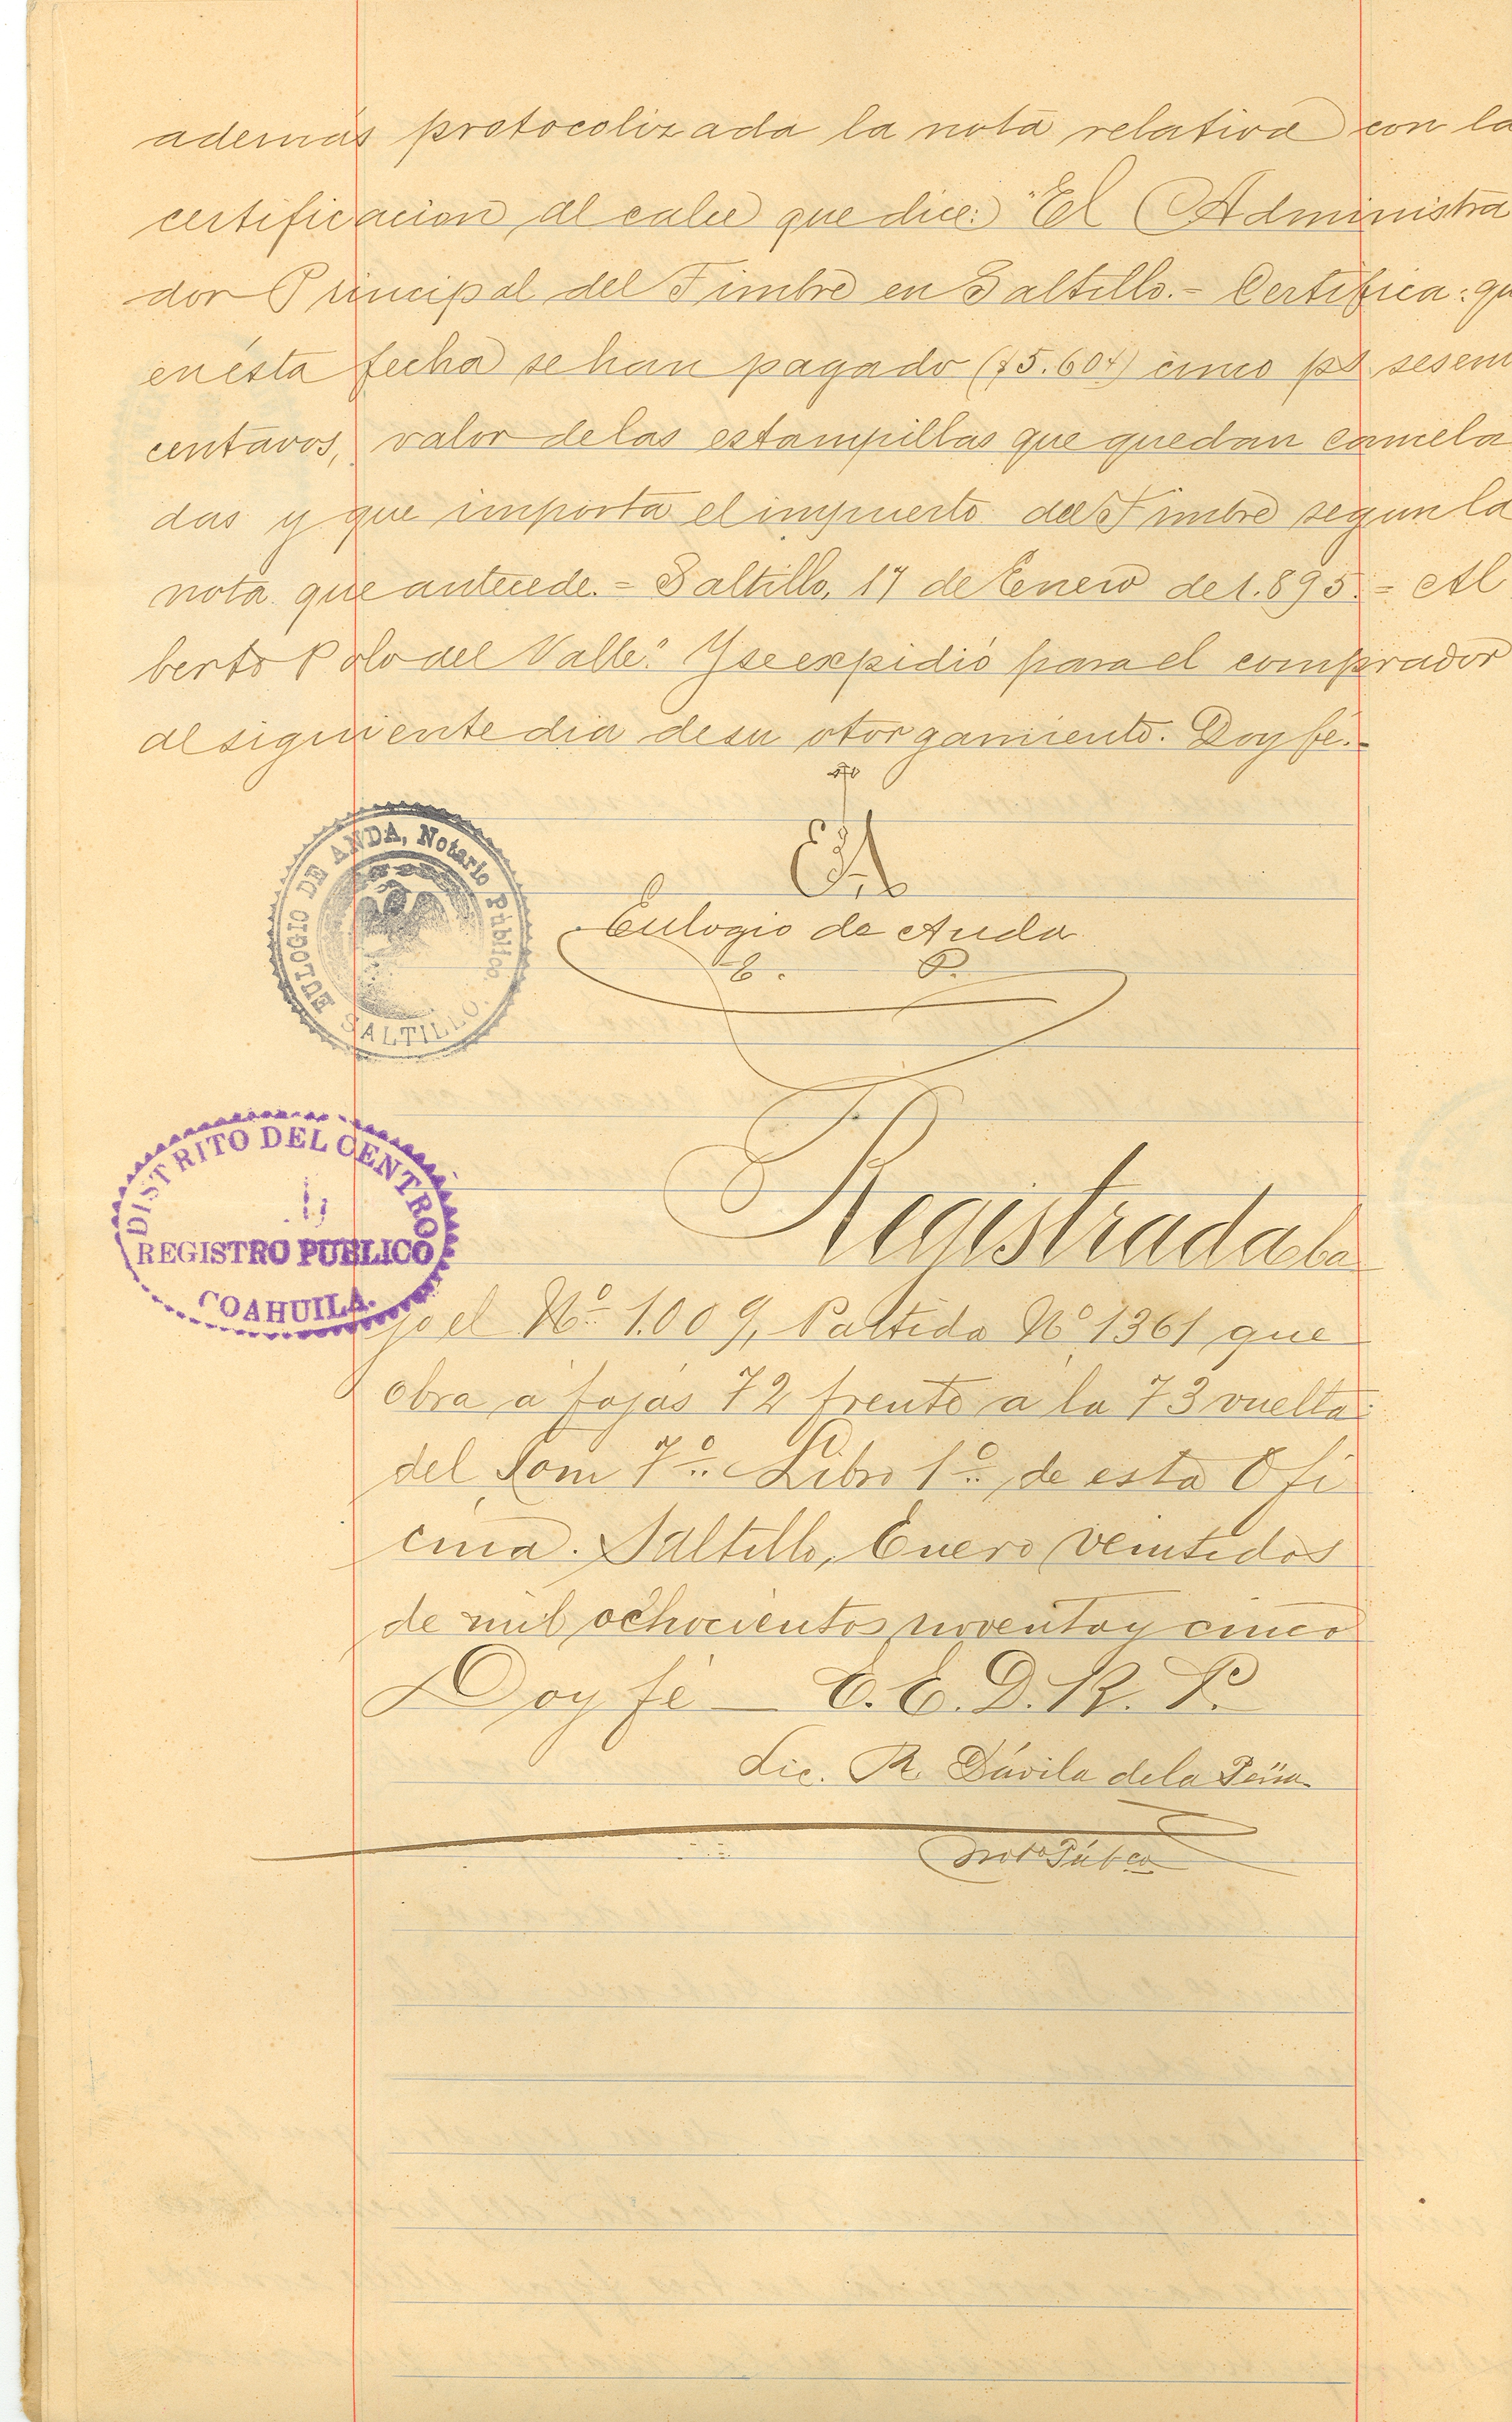 además protocolizada la nota relativa con la
certificacion al calce que dice: "El Administra
dor Principal del Timbre en Saltillo.= Certifica: qu
en ésta fecha se han pagado ($5.60¢) cinco ps sesen
centavos, valor de las estampillas que quedan cancela
das y que importa el impuesto del Timbre segun la
nota que antecede.= Saltillo, 17 de Enero de 1.895.= Al
berto Polo del Valle." Y se expidió para el comprador
al siguiente dia de su otorgamiento. Doy fé.=
EULOGIO DE ANDA, Notario Público.
SALTILLO.
Eulogio de Anda
E. P.
DISTRITO DEL CENTRO
REGISTRO PUBLICO
COAHUILA.
Registrada ba
jo el No. 1.009, Partida No 1361 que
obra a fojas 72 frente a la 73 vuelta
del Tom 7o. Libro 1o. de esta Ofi
cina. Saltillo, Enero veintidos
de mil ochocientos noventa y cinco
Doy fé — E. E. D. R. P.
Lic. R. Dávila de la Peña
Noto Púbco